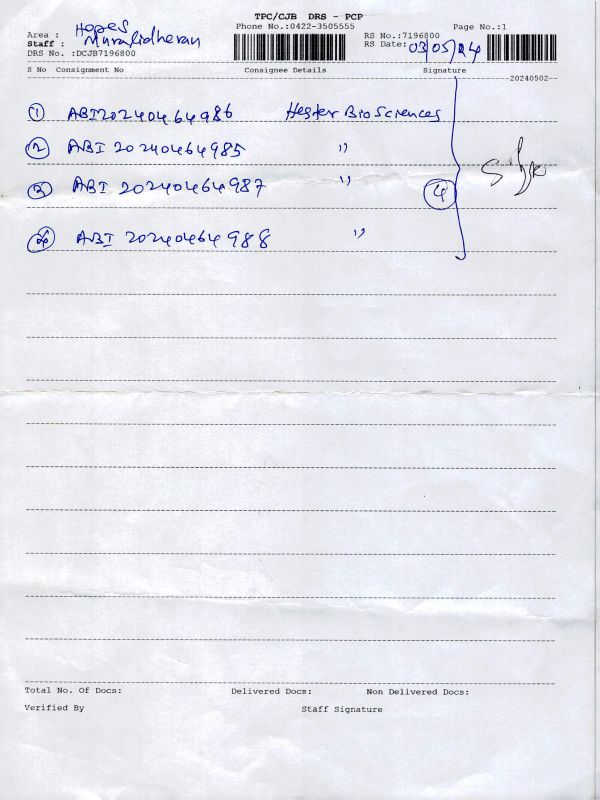 TPC/CJB DRS - PCP
Phone No.:0422-3505555 Page No.:1
Area : Hopes RS No.:7196800
Staff : Muralidheran RS Date: 03/05/24
DRS No. :DCJB7196800
S No Consignment No Consignee Details Signature
20240502--
1 ABI20240464986 Hester BioSciences
2 ABI 20240464985 "
3 ABI 20240464987 " 4
4 ABI 20240464988 "
Total No. Of Docs: Delivered Docs: Non Delivered Docs:
Verified By Staff Signature